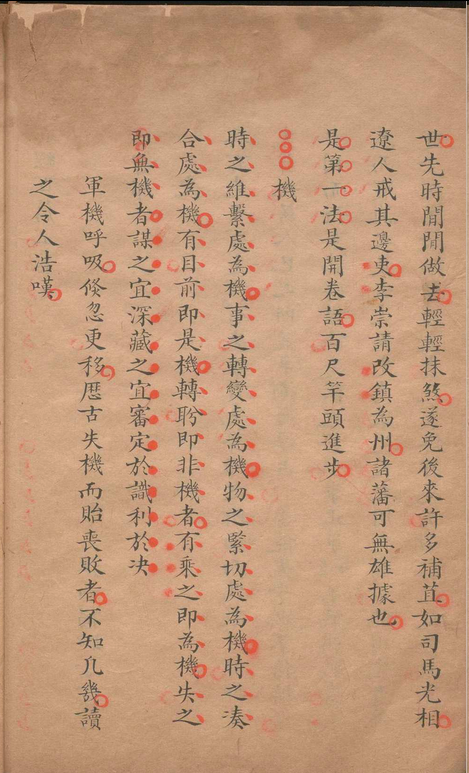 世先時閒閒做去輕輕抹煞遂免後來許多補苴如司馬光相
遼人戒其邊吏李崇請改鎮為州諸藩可無雄據也
是第一法是開卷語百尺竿頭進步
機
時之維繫處為機事之轉變處為機物之緊切處為機時之湊
合處為機有目前即是機轉盻即非機者有乘之即為機失之
即無機者謀之宜深藏之宜審定於識利於決
軍機呼吸倐忽更移歷古失機而貽喪敗者不知凡幾讀
之令人浩嘆